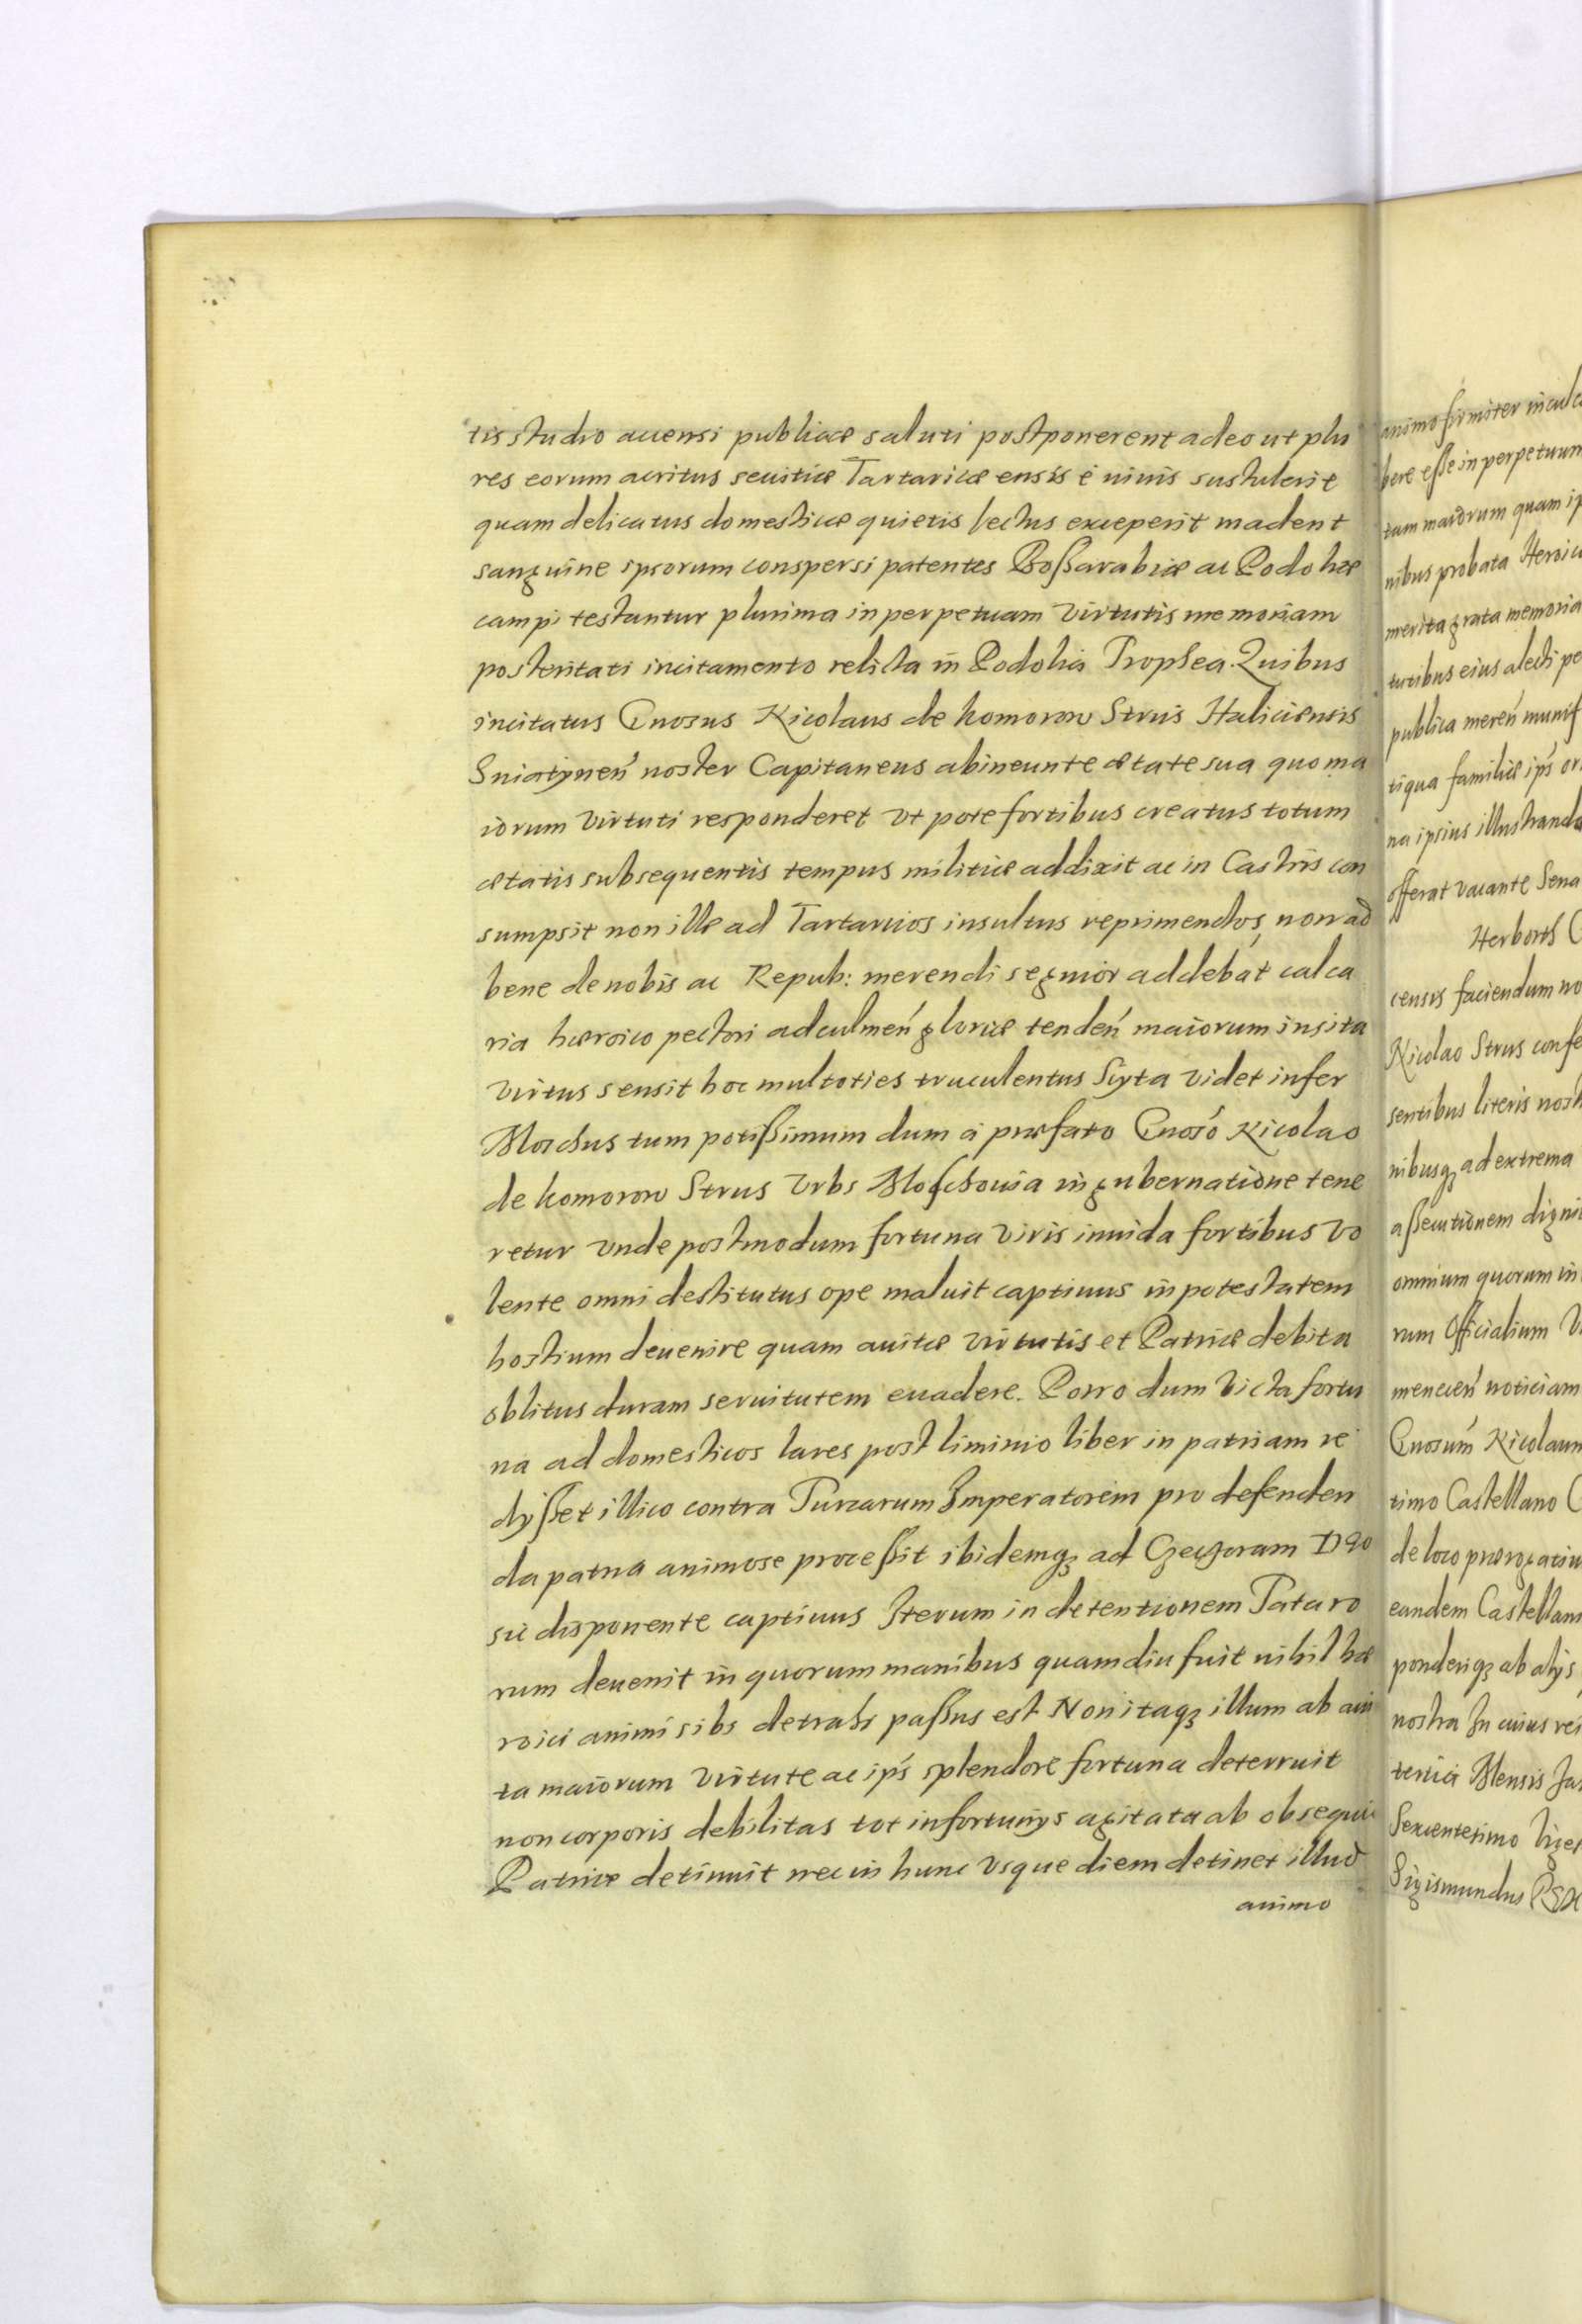 tis studio accensi publicæ saluti postponerent adeo ut plu
res eorum acritus seuitiæ Tartaricæ ensis è uiuis sustulerit
quam delicatus domesticæ quietis lectus exceperit madent
sanguine ipsorum conspersi patentes Boßarabiæ ac Podoliæ
campi testantur plurima in perpetuam virtutis memoriam
posteritati incitamento relicta in Podolia Trophea. Quibus
incitatus Gnosus Nicolaus de komorow Strus Haliciensis
Sniatynen̄ noster Capitaneus ab ineunte ætate sua quo ma
iorum virtuti responderet vt pote fortibus creatus totum
ætatis subsequentis tempus militiæ addixit ac in Castris con
sumpsit non ille ad Tartaricos insultus reprimendos, non ad
bene de nobis ac Repub: merendi segnior addebat calca
ria hæroico pectori ad culmen̄ gloriæ tenden̄ maiorum insita
virtus sensit hoc multoties truculentus Scyta videt infer
Moschus tum potißimum dum à præfato Gnoso Nicolao
de komorow Strus vrbs Moschouia in gubernatione tene
retur vnde postmodum fortuna viris inuida fortibus vo
lente omni destitutus ope maluit captiuus in potestatem
hostium deuenire quam auitæ virtutis et Patriæ debita
oblitus duram seruitutem euadere. Porro dum victa fortu
na ad domesticos lares post liminio liber in patriam re
dijßet illico contra Turcarum Imperatorem pro defenden
da patria animose proceßit ibidemq₃ ad Czeczoram Deo
sic disponente captiuus Iterum in detentionem Tataro
rum deuenit in quorum manibus quamdiu fuit nihil hæ
roici animi sibi detrahi paßus est Non itaq₃ illum ab aui
ta maiorum virtute ac ips̄ splendore fortuna deterruit
non corporis debilitas tot infortunijs agitata ab obsequio
Patriæ detinuit nec in hunc vsque diem detinet illud
animo
animo firmiter
bere eße in perpetuum
tam maiorum quam
nibus probata
merita grata memoria
tutibus eius
publica meren̄
tiqua familiæ ips̄
na ipsius
offerat vacante
Herborth
censis faciendum
Nicolao Strus
sentibus literis
nibusq₃ ad extrema
aßecutionem
omnium quorum
rum Officialium
noticiam
Gnosum Nicolaum
timo Castellano
de loco
eandem
ab alijs
nostra In cuius rei
tertia Mensis
Sexcentesimo
Sigismundus